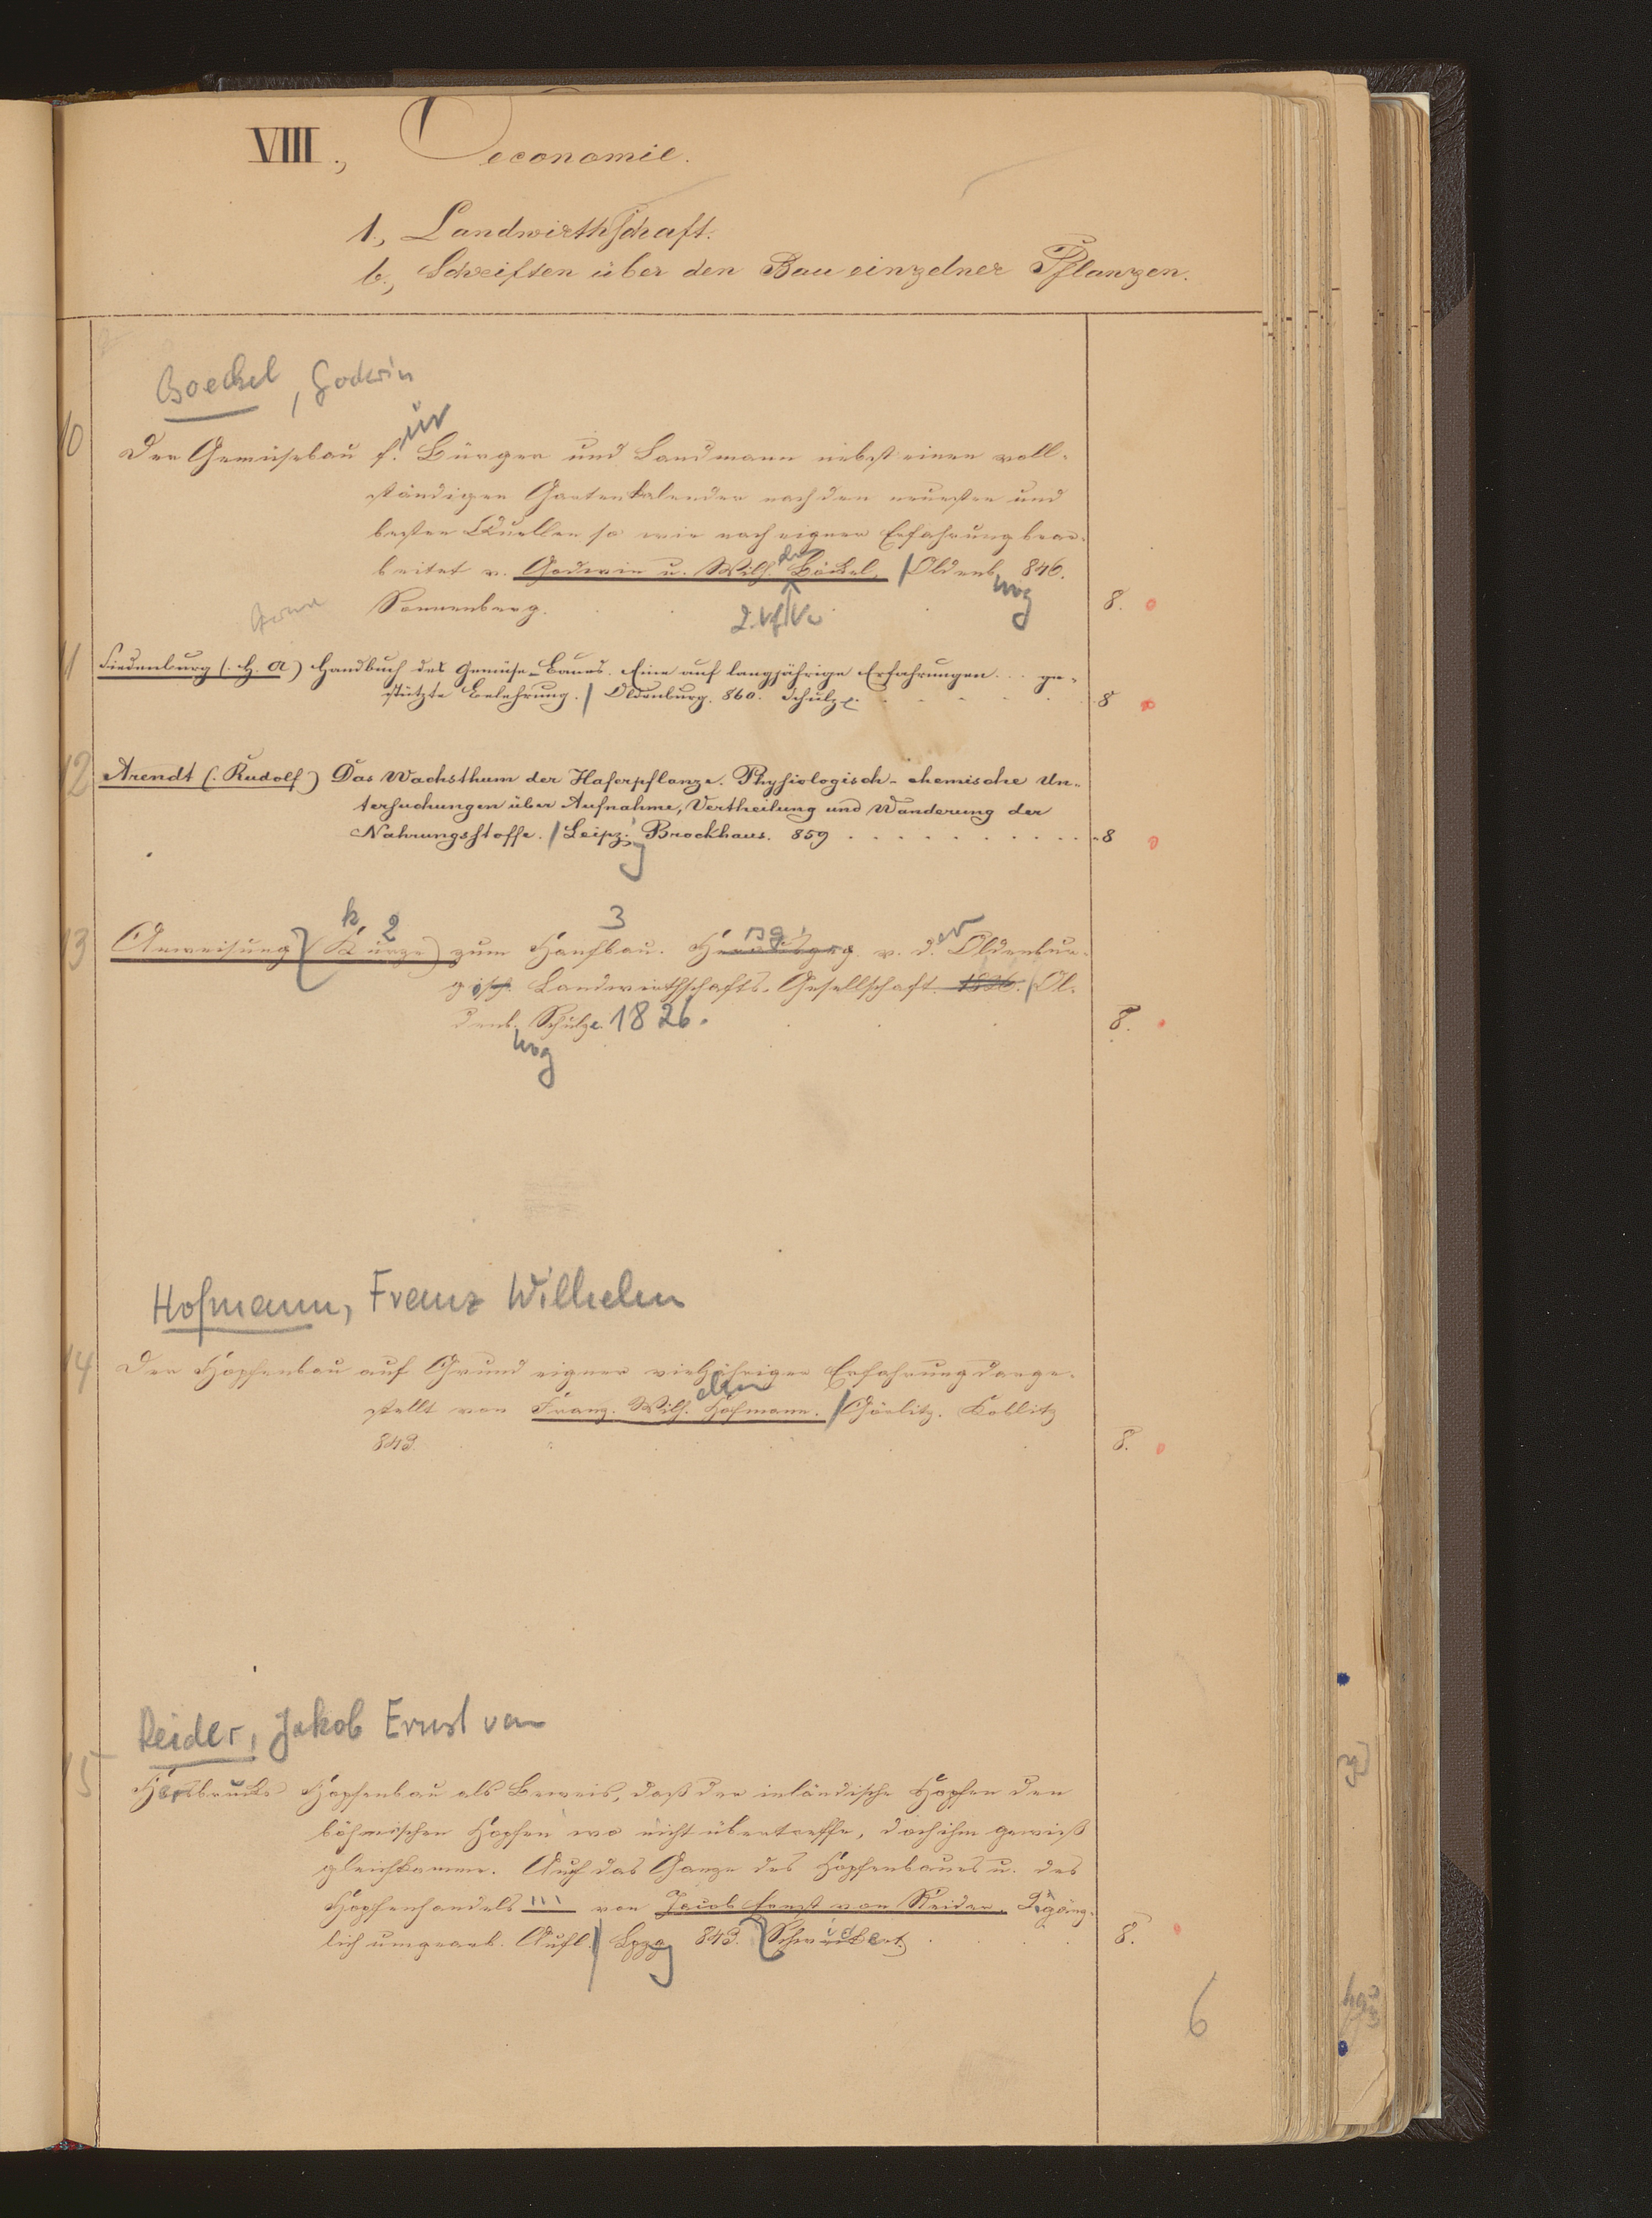 VIII., Oeconomie.
1., Landwirthschaft.
b., Schriften über den Bau einzelner Pflanzen.
Boeckel, Godwin
10
ür
Der Gemüsebau f. Bürger und Landmann nebst einen voll-
ständigen Gartenkalender nach den neuesten und
besten Quellen so wie nach eigner Erfahrung bear-
beitet v. Godwin u. Wilh. Böckel, / Oldenb. 846.
urg
Sonnenberg. 8.
2. Vf
11 Siedenburg (. H. A) Handbuch des Gemüse-Baues. Eine auf langjährige Erfahrungen... ge-
stützte Belehrung. / Oldenburg. 860. Schulze. 8
12 Arendt (. Rudolf) Das Wachsthum der Haferpflanze. Physiologisch-chemische Un-
tersuchungen über Aufnahme, Vertheilung und Wanderung der
Nahrungsstoffe. / Leipz. Brockhaus. 859 8
g
k 2 3
13 Anweisung (Kurze) zum Hanfbau. v. d. Oldenbur-
er
gisch. Landwirthschafts-Gesellschaft. 1826. / Ol-
denb. Schulze. 1826. 8.
urg
Hofmann, Franz Wilhelm
14 Der Hopfenbau auf Grund eigner vieljähriger Erfahrung darge-
elm
stellt von Franz. Wilh. Hofmann. / Görlitz. Koblitz
843. 8.
Reider, Jakob Ernst von
15
Hersbrucks Hopfenbau als Beweis, daß der inländische Hopfen den
böhmischen Hopfen wo nicht übertreffe, doch ihm gewiß
gleichkomme. Auch das Ganze des Hopfenbaues u. des
Hopfenhandels ... von Jacob Ernst von Reider. 2 gänz-
lich umgearb. Aufl. / Lpzg 843. 8.
6